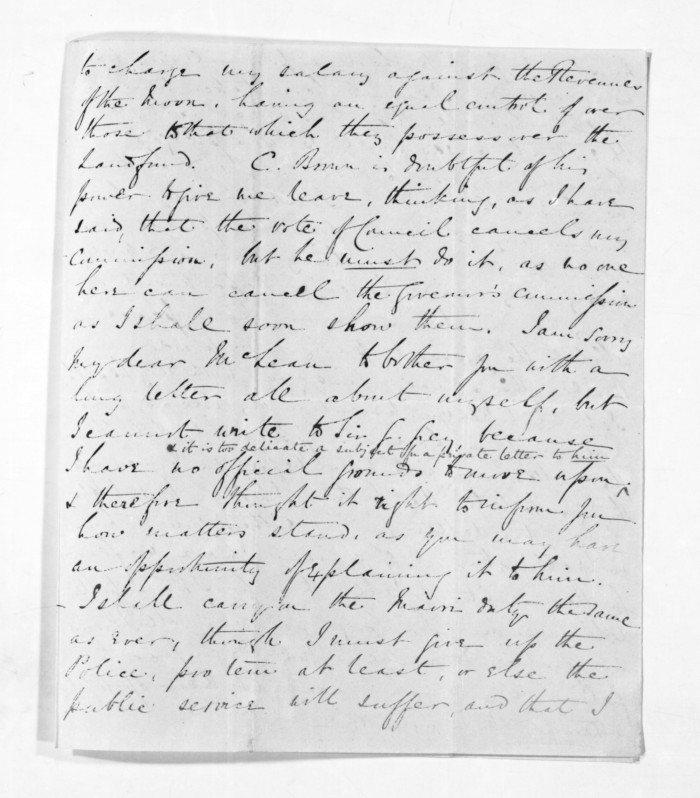 to charge my salary against the Revenues
of the Moon, having an equal control of over
those to that which they possess over the
Land fund. C. Brown is doubtful of his
power to give me leave, thinking, as I have
said, that the vote of Council cancels my
Commission, but he must do it, as no one
here can cancel the Governor's Commission
as I shall soon show them. I am sorry
my dear McLean to bother you with a
long letter all about myself, but
I cannot write to Sir G. Grey because
& it is too delicate a subject for a private letter to him
I have no official grounds to move upon,
& therefore thought it right to inform you
how matters stand, as you may have
an opportunity of explaining it to him.
- I shall carry on the Maori duty the same
as ever, though I must give up the
Police, pro tem at least, or else the
public service will suffer, and that I